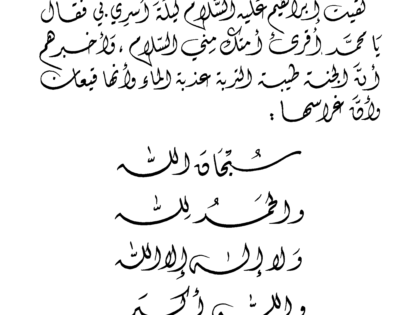 لقيت إبراهيم عليه السلام ليلة أسري بي فقال
يا محمد أقرئ أمتك مني السلام ، وأخبرهم
أنّ الجنة طيبة التربة عذبة الماء وأنها قيعان
وأنّ غراسها :
سُبْحَانَ اللّٰه
والحَمَدُ لِلّٰه
وَلا إلٰه إلا اللّٰه
واللّٰه أكبر